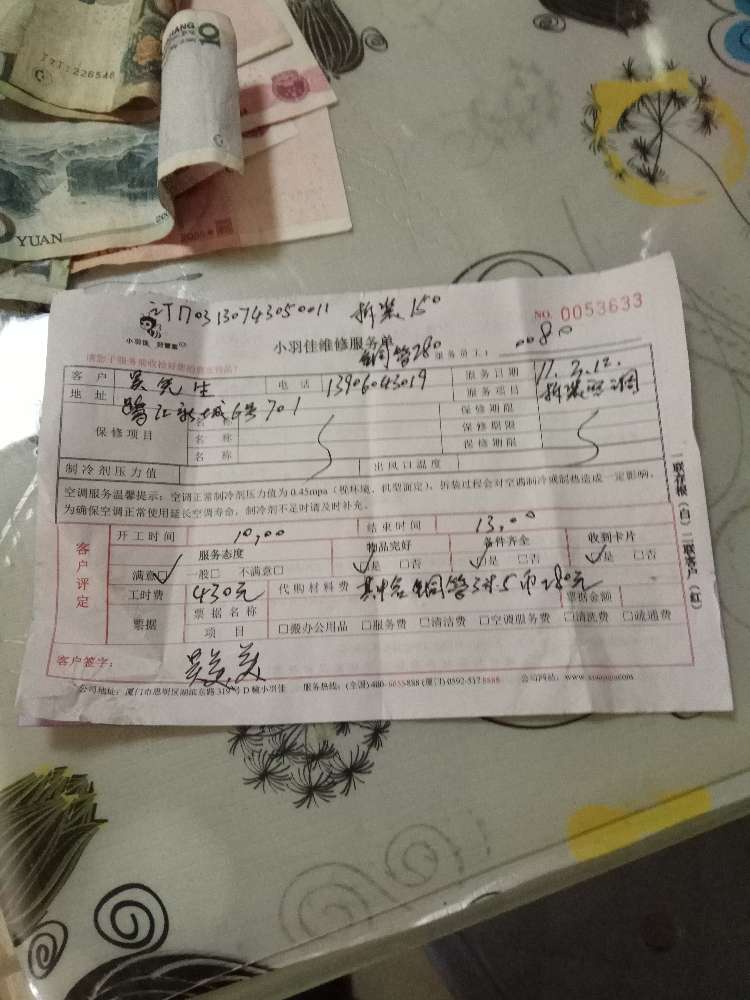 10
TZT1226546
YUAN
订703130743050011 拆装150
NO. 0053633
小羽佳
小羽佳维修服务单
铜管280
服务员工: 0080
客 户 吴先生 电 话 13906043019 服务日期 17.2.12.
地 址 鹭江新城6号701 服务项目 拆装空调
保修项目 名 称 保修期限
名 称 保修期限
名 称 保修期限
制冷剂压力值 出风口温度
空调服务温馨提示：空调正常制冷剂压力值为 0.45mpa（视环境、机型而定）、拆装过程会对空调制冷或制热造成一定影响，
为确保空调正常使用延长空调寿命，制冷剂不足时请及时补充。
客户评定
开工时间 10,00 结束时间 13,00
服务态度 物品完好 备件齐全 收到卡片
满意☑ 一般□ 不满意□ ☑是 □否 ☑是 □否 ☑是 □否
工时费 430元 代购材料费 其中含铜管3对5市280元
票据 票据名称 票据金额
项 目 □搬办公用品 □服务费 □清洁费 □空调服务费 □清洗费 □疏通费
客户签字：
公司地址：厦门市思明区湖滨东路319号D幢小羽佳 服务热线：(全国)400-6055-888 (厦门)0592-5178888 公司网站：
一联存根（白）二联客户（红）